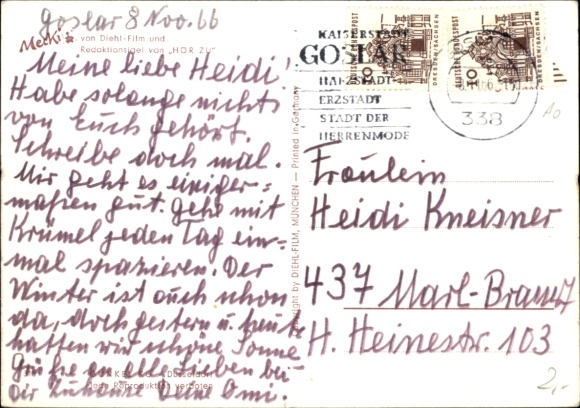 Goslar 8 Nov. 66
Mecki von Diehl-Film und
Redaktionsigel von „HÖR ZU“
Meine liebe Heidi!
Habe solange nichts
von Euch gehört.
Schreibe doch mal.
Mir geht es einiger=
maßen gut. Gehe mit
Krümel jeden Tag ein-
mal spazieren. Der
Winter ist auch schon
da, doch gestern u. heute
hatten wir schöne Sonne
Grüße an alle Lieben bei
dir zuhause Deine Omi.
Düsseldorf
Jede Reproduktion verboten
by DIEHL-FILM, MÜNCHEN — Printed in Germany
KAISERSTADT
GOSLAR
HARZSTADT
ERZSTADT
STADT DER
HERRENMODE
DEUTSCHE BUNDESPOST
10
DRESDEN/SACHSEN
DEUTSCHE BUNDESPOST
10
DRESDEN/SACHSEN
338
Fräulein
Heidi Kneisner
437 Marl-Brandt
H. Heinestr. 103
2,-